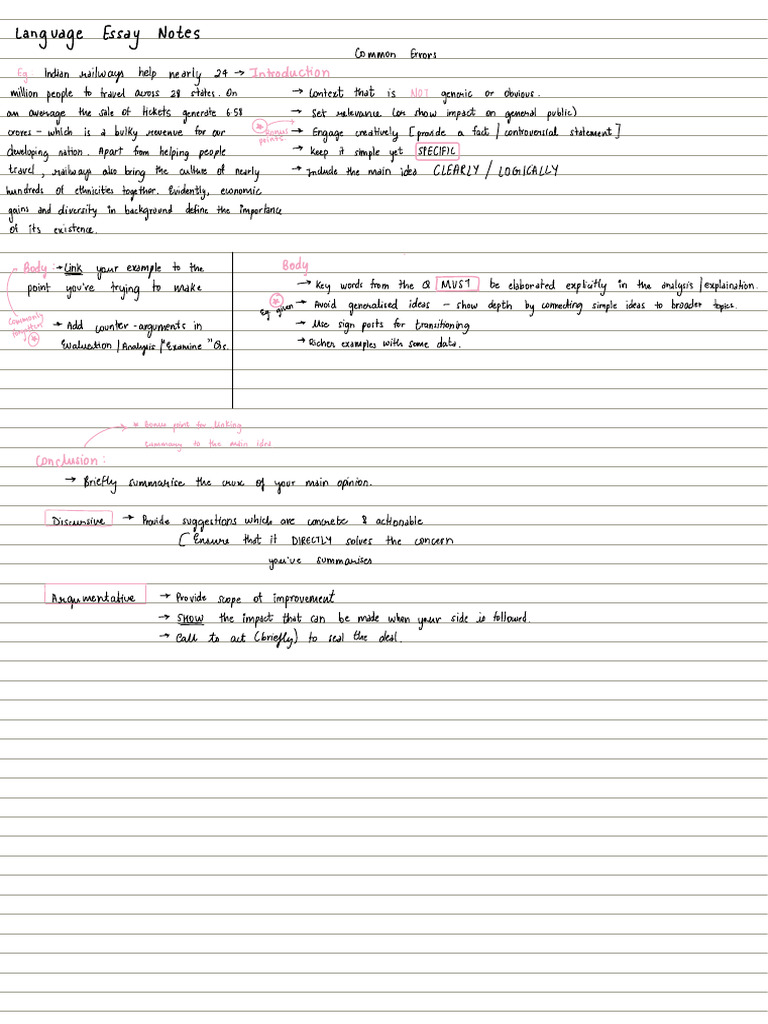 Language Essay Notes
Common Errors
Eg: Indian railways help nearly 24 → Introduction
million people to travel across 28 states. On
an average the sale of tickets generate 6.58
crores - which is a bulky revenue for our
developing nation. Apart from helping people
travel, railways also bring the culture of nearly
hundreds of ethnicities together. Evidently, economic
gains and diversity in background define the importance
of its existence.
→ Context that is NOT generic or obvious.
→ Set relevance (or show impact on general public)
* bonus points → Engage creatively [provide a fact / controversial statement]
→ Keep it simple yet SPECIFIC
→ Include the main idea CLEARLY / LOGICALLY
Body: → Link your example to the
point you're trying to make
commonly
forgotten
*
→ Add counter-arguments in
Evaluation / Analysis / "Examine" Qs.
Body
→ Key words from the Q MUST be elaborated explicitly in the analysis / explaination.
* Eg given → Avoid generalised ideas - show depth by connecting simple ideas to broader topics.
→ Use sign posts for transitioning
→ Richer examples with some data.
* Bonus point for linking
summary to the main idea
Conclusion:
→ Briefly summarise the crux of your main opinion.
Discursive → Provide suggestions which are concrete & actionable
( Ensure that it DIRECTLY solves the concern
you've summarises
Argumentative → Provide scope of improvement
→ SHOW the impact that can be made when your side is followed.
→ Call to act (briefly) to seal the deal.